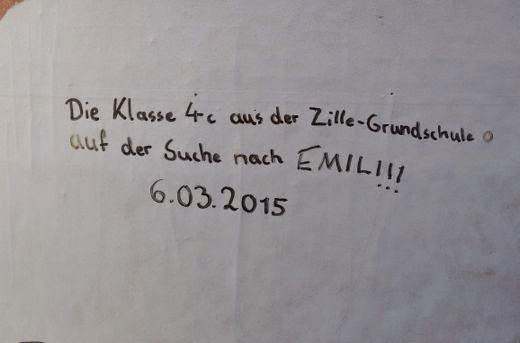 Die Klasse 4c aus der Zille-Grundschule
auf der Suche nach EMIL!!!
6.03.2015